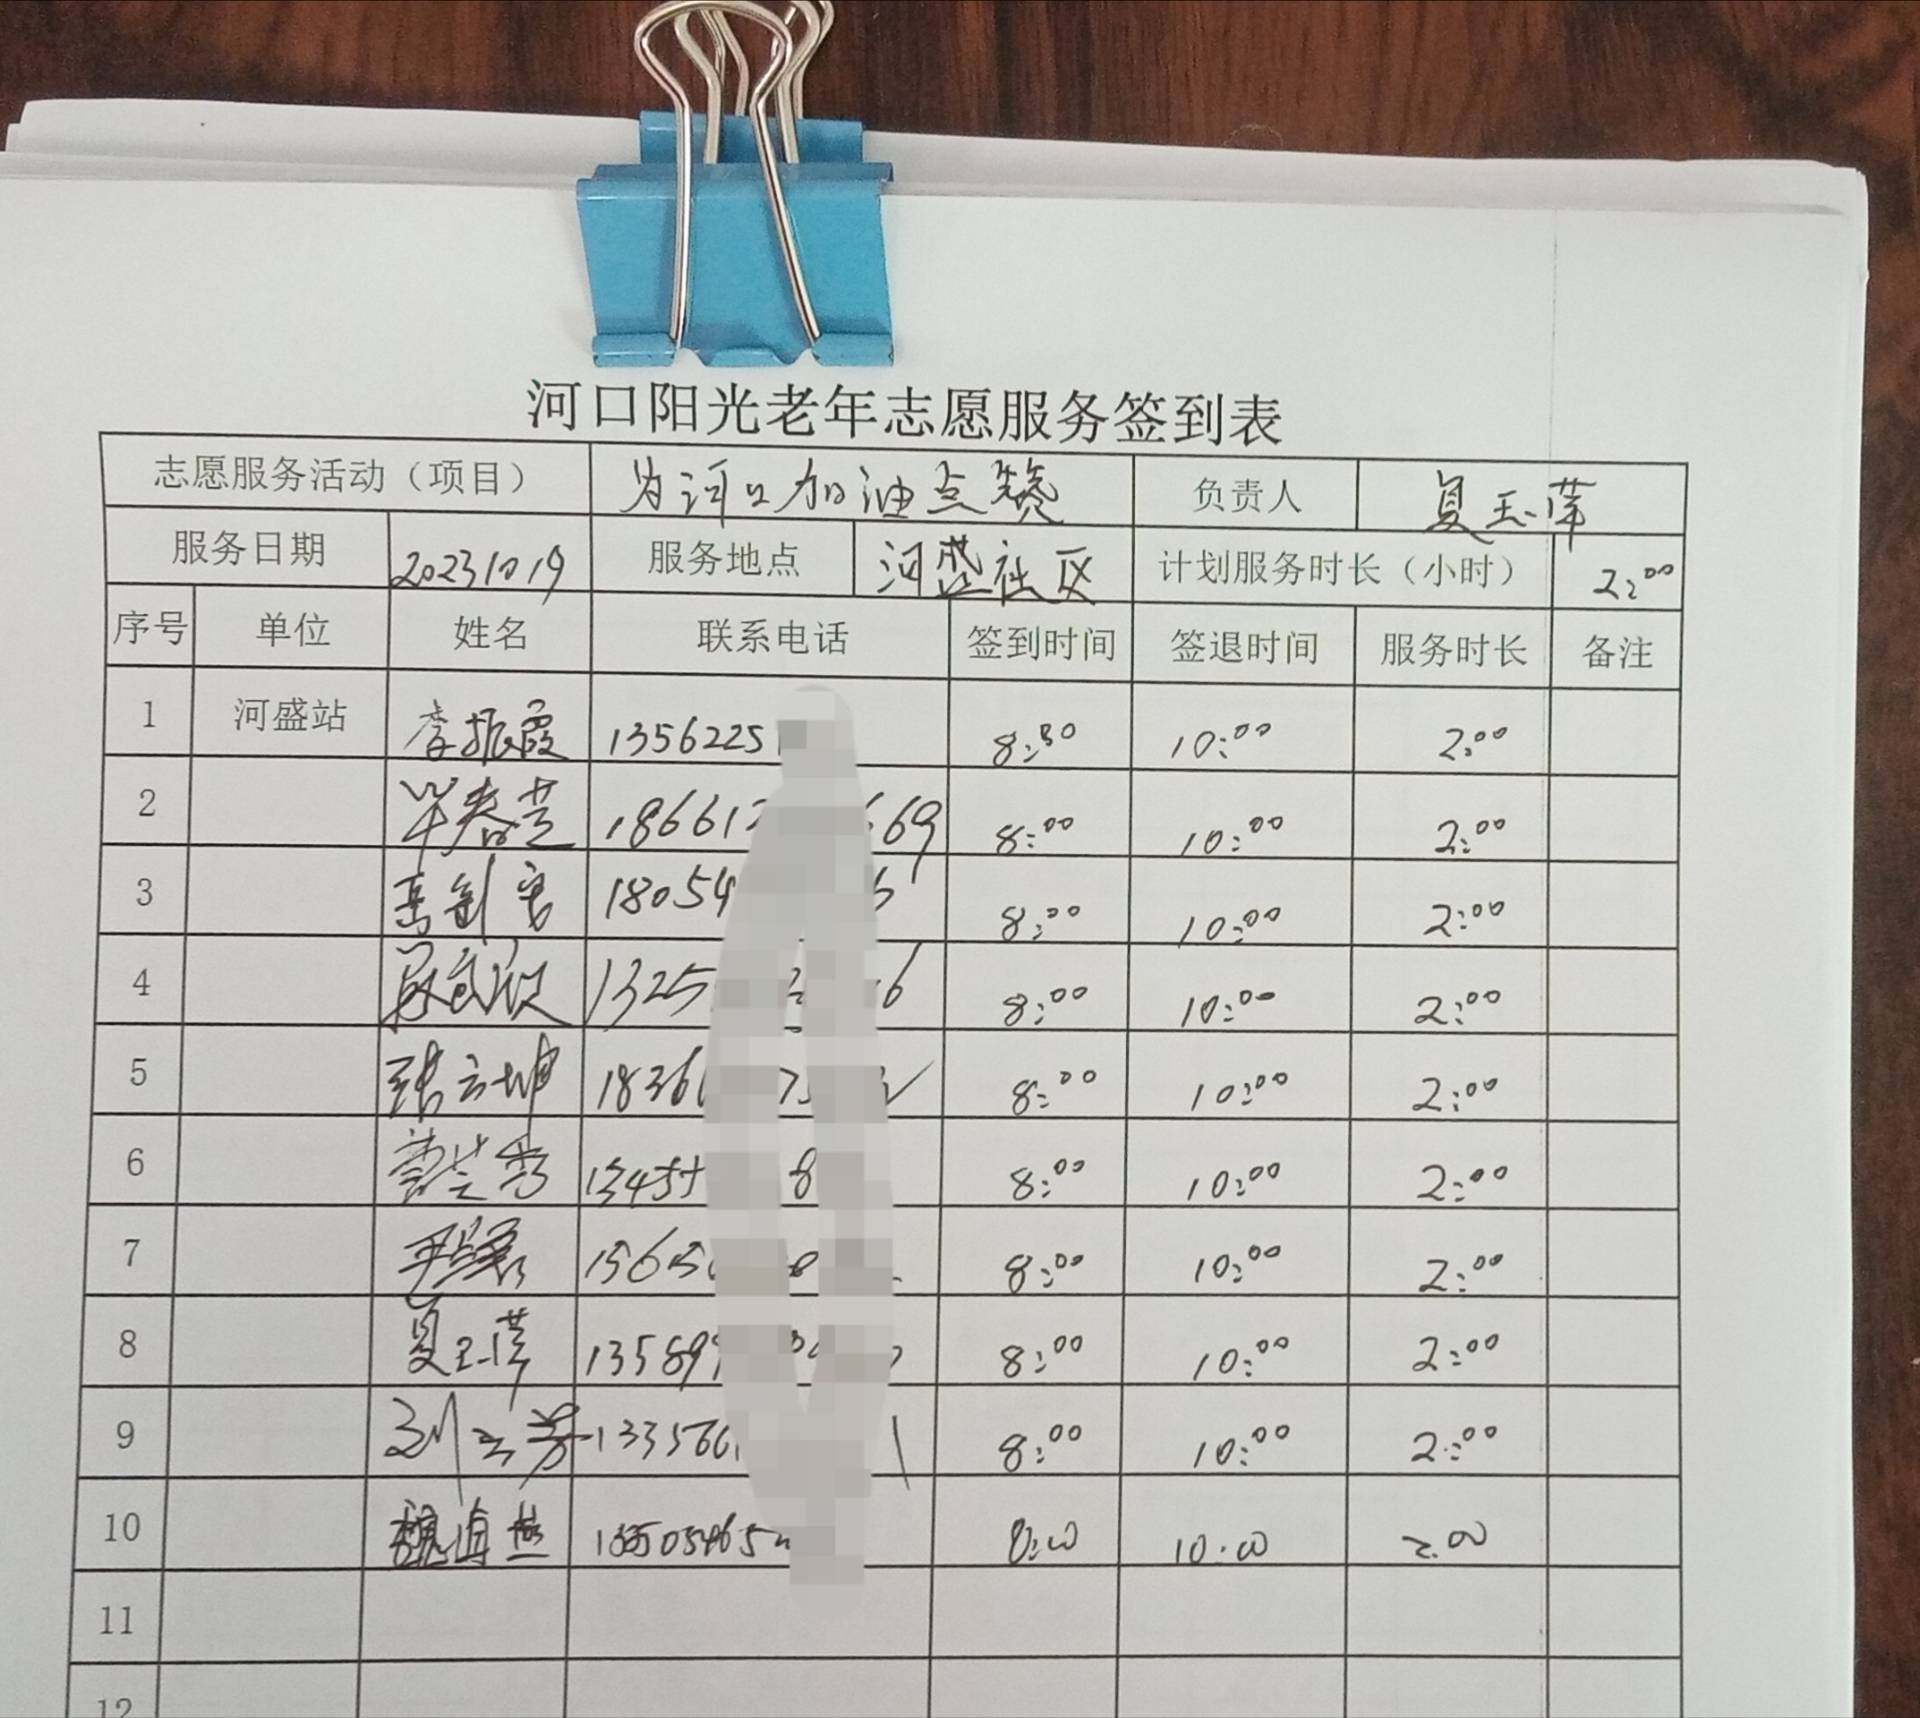 河口阳光老年志愿服务签到表
志愿服务活动（项目） 为河口加油点赞 负责人 夏玉萍
服务日期 20231019 服务地点 河盛社区 计划服务时长（小时） 2:00
序号 单位 姓名 联系电话 签到时间 签退时间 服务时长 备注
1 河盛站 李振霞 1356225 8:30 10:00 2:00
2 毕春芝 18661 69 8:00 10:00 2:00
3 18054 8:00 10:00 2:00
4 1325 6 8:00 10:00 2:00
5 张云坤 1836 8:00 10:00 2:00
6 曹兰秀 13455 8 8:00 10:00 2:00
7 1565 8:00 10:00 2:00
8 夏玉萍 13589 8:00 10:00 2:00
9 刘云芳 133566 1 8:00 10:00 2:00
10 魏海燕 8:00 10:00 2:00
11
12